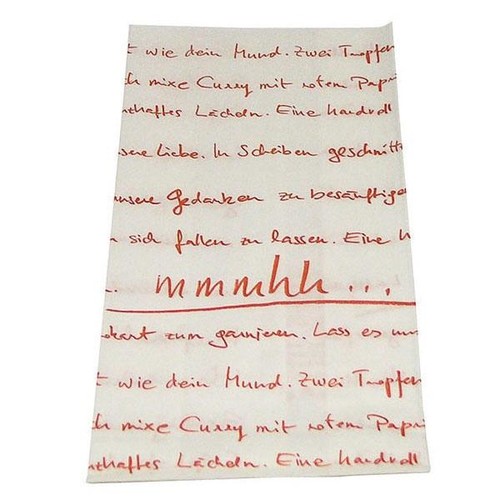 t wie dein Mund. Zwei Tropfen
ch mixe Curry mit rotem Papri
nthaftes Lächeln. Eine handvoll
nsere Liebe. In Scheiben geschnitte
unsere Gedanken zu besänftigen
n sich fallen zu lassen. Eine h
. mmmhh...
kant zum garnieren. Lass es un
t wie dein Mund. Zwei Tropfen
ch mixe Curry mit rotem Papri
nthaftes Lächeln. Eine handvoll